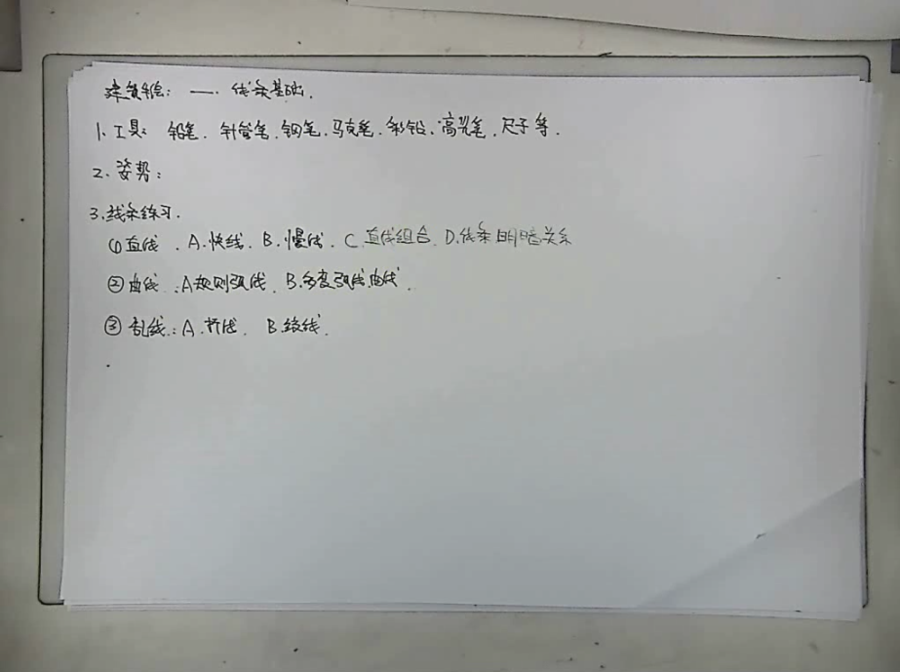 建筑手绘: 一. 线条基础.
1. 工具: 铅笔. 针管笔. 钢笔. 马克笔. 彩铅. 高光笔. 尺子等.
2. 姿势:
3. 线条练习.
①直线. A.快线. B.慢线. C.直线组合. D.线条明暗关系
②曲线.:A规则弧线. B.多变弧线曲线.
③乱线.:A.折线. B.线.